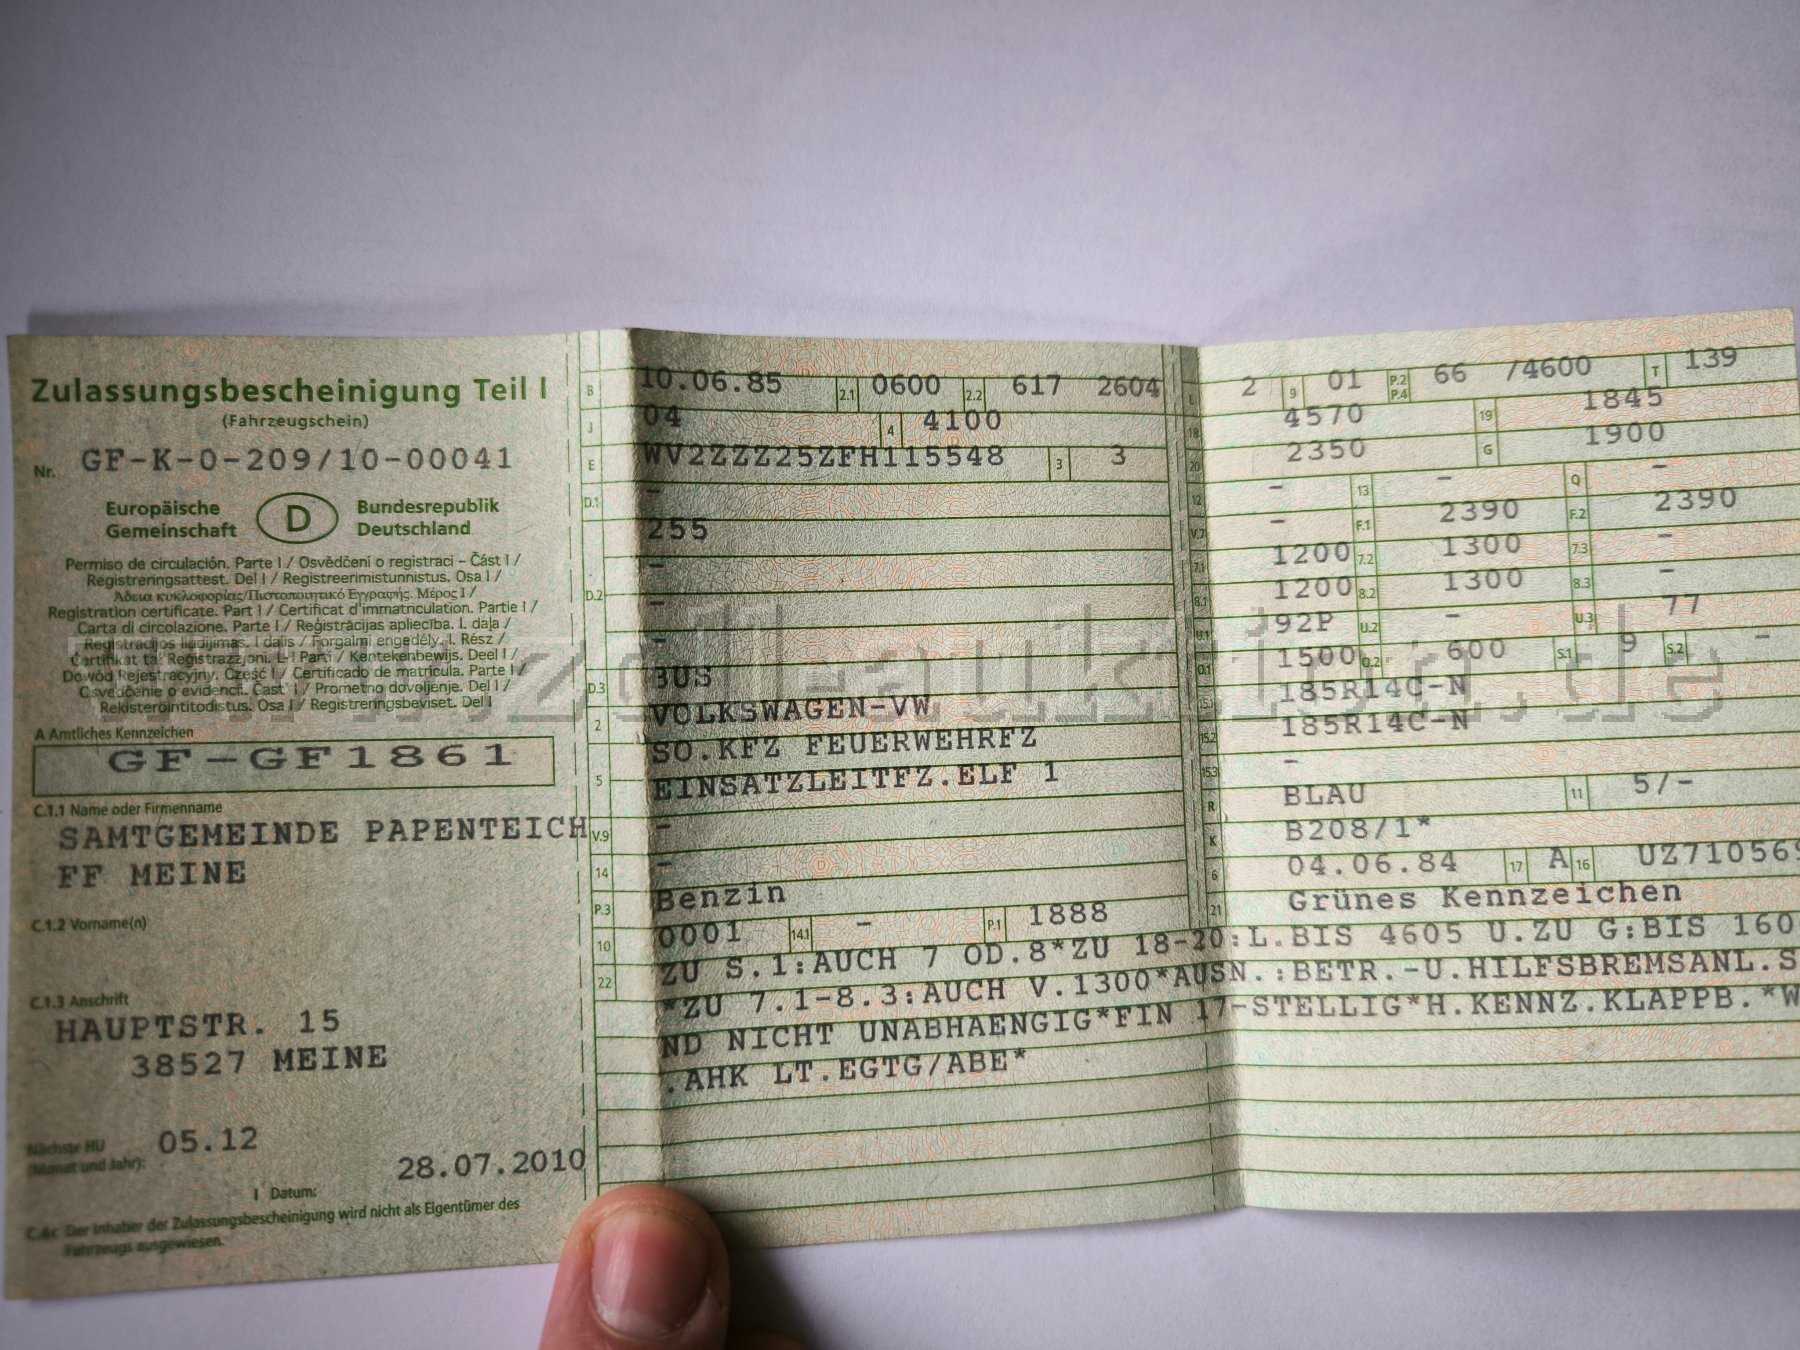 Zulassungsbescheinigung Teil I
(Fahrzeugschein)
Nr. GF-K-0-209/10-00041
Europäische Gemeinschaft
D
Bundesrepublik Deutschland
Permiso de circulación. Parte I / Osvědčení o registraci – Část I /
Registreringsattest. Del I / Registreerimistunnistus. Osa I /
Άδεια κυκλοφορίας/Πιστοποιητικό Εγγραφής. Μέρος I /
Registration certificate. Part I / Certificat d'immatriculation. Partie I /
Carta di circolazione. Parte I / Reģistrācijas apliecība. I. daļa /
Registracijos liudijimas. I dalis / Forgalmi engedély. I. Rész /
Ċertifikat ta' Reġistrazzjoni. L-I Parti / Kentekenbewijs. Deel I /
Dowód Rejestracyjny. Część I / Certificado de matrícula. Parte I /
Osvedčenie o evidencii. Časť I / Prometno dovoljenje. Del I /
Rekisteröintitodistus. Osa I / Registreringsbeviset. Del I
A Amtliches Kennzeichen
GF-GF1861
C.1.1 Name oder Firmenname
SAMTGEMEINDE PAPENTEICH
FF MEINE
C.1.2 Vorname(n)
C.1.3 Anschrift
HAUPTSTR. 15
38527 MEINE
Nächste HU
(Monat und Jahr): 05.12
28.07.2010
I Datum:
C.4c Der Inhaber der Zulassungsbescheinigung wird nicht als Eigentümer des
Fahrzeugs ausgewiesen.
B 10.06.85 2.1 0600 2.2 617 2604
J 04 4 4100
E WV2ZZZ25ZFH115548 3 3
D.1 -
255
-
D.2 -
-
D.3 BUS
2 VOLKSWAGEN-VW
SO.KFZ FEUERWEHRFZ
5 EINSATZLEITFZ.ELF 1
V.9 -
14 -
P.3 Benzin
10 0001 14.1 - P.1 1888
L 2 9 01 P.2 P.4 66 /4600 T 139
18 4570 19 1845
20 2350 G 1900
12 - 13 - Q -
V.7 - F.1 2390 F.2 2390
7.1 1200 7.2 1300 7.3 -
8.1 1200 8.2 1300 8.3 -
U.1 92P U.2 - U.3 77
O.1 1500 O.2 600 S.1 9 S.2 -
15.1 185R14C-N
15.2 185R14C-N
15.3 -
R BLAU 11 5/-
K B208/1*
6 04.06.84 17 A 16 UZ710569
21 Grünes Kennzeichen
22 ZU S.1:AUCH 7 OD.8*ZU 18-20:L.BIS 4605 U.ZU G:BIS 160
*ZU 7.1-8.3:AUCH V.1300*AUSN.:BETR.-U.HILFSBREMSANL.S
ND NICHT UNABHAENGIG*FIN 17-STELLIG*H.KENNZ.KLAPPB.*W
.AHK LT.EGTG/ABE*
zoll-auktion.de